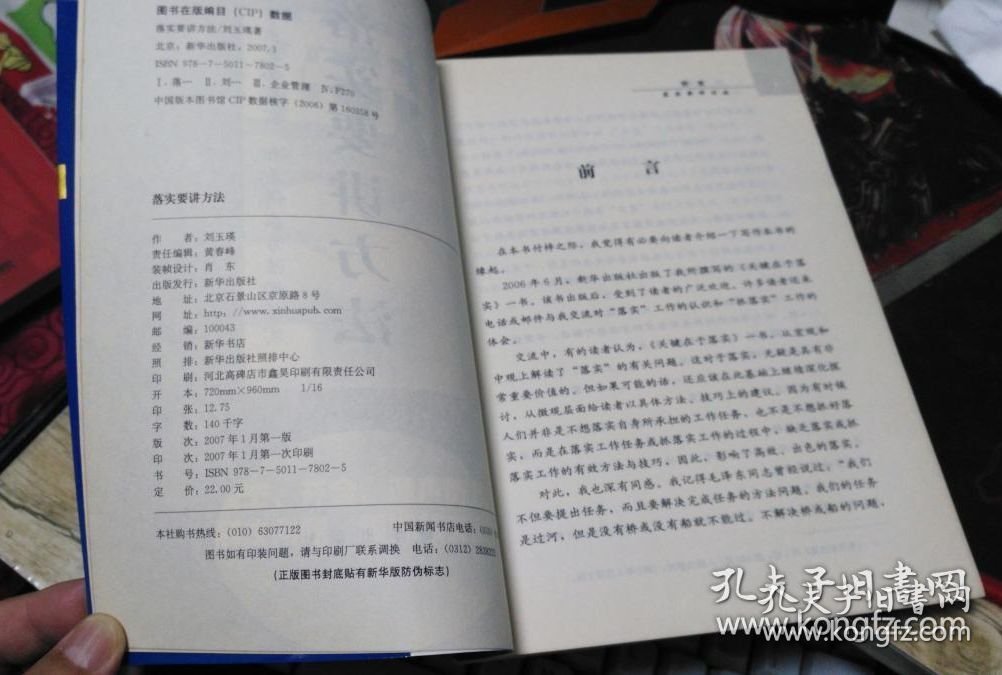 图书在版编目(CIP)数据
落实要讲方法/刘玉瑛著
北京:新华出版社,2007.1
ISBN 978-7-5011-7802-5
Ⅰ.落… Ⅱ.刘… Ⅲ.企业管理 Ⅳ.F270
中国版本图书馆CIP数据核字(2006)第160358号
落实要讲方法
作 者:刘玉瑛
责任编辑:黄春峰
装帧设计:肖 东
出版发行:新华出版社
地 址:北京石景山区京原路8号
网 址:http://www.xinhuapub.com
邮 编:100043
经 销:新华书店
照 排:新华出版社照排中心
印 刷:河北高碑店市鑫昊印刷有限责任公司
开 本:720mm×960mm 1/16
印 张:12.75
字 数:140千字
版 次:2007年1月第一版
印 次:2007年1月第一次印刷
书 号:ISBN 978-7-5011-7802-5
定 价:22.00元
本社购书热线:(010) 63077122 中国新闻书店电话:
图书如有印装问题,请与印刷厂联系调换 电话:(0312)
(正版图书封底贴有新华版防伪标志)
前 言
在本书付梓之际,我觉得有必要向读者介绍一下写作本书的
缘起。
2006年6月,新华出版社出版了我所撰写的《关键在于落
实》一书。该书出版后,受到了读者的广泛欢迎。许多读者还来
电话或邮件与我交流对“落实”工作的认识和“抓落实”工作的
体会。
交流中,有的读者认为,《关键在于落实》一书,从宏观和
中观上解读了“落实”的有关问题。这对于落实,无疑是具有非
常重要价值的。但如果可能的话,还应该在此基础上继续深化探
讨,从微观层面给读者以具体方法、技巧上的建议。因为有时候
人们并非是不想落实自身所承担的工作任务,也不是不想抓好落
实,而是在落实工作任务或抓落实工作的过程中,缺乏落实或抓
落实工作的有效方法与技巧,因此,影响了高效、出色的落实。
对此,我也深有同感。我记得毛泽东同志曾经说过:“我们
不但要提出任务,而且要解决完成任务的方法问题。我们的任务
是过河,但是没有桥或没有船就不能过。不解决桥或船的问题,
孔夫子旧书网
www.kongfz.com